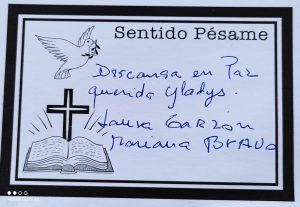 Sentido Pésame
Descansa en Paz
querida Gladys.
Laura Garzón
Mariana Bravo